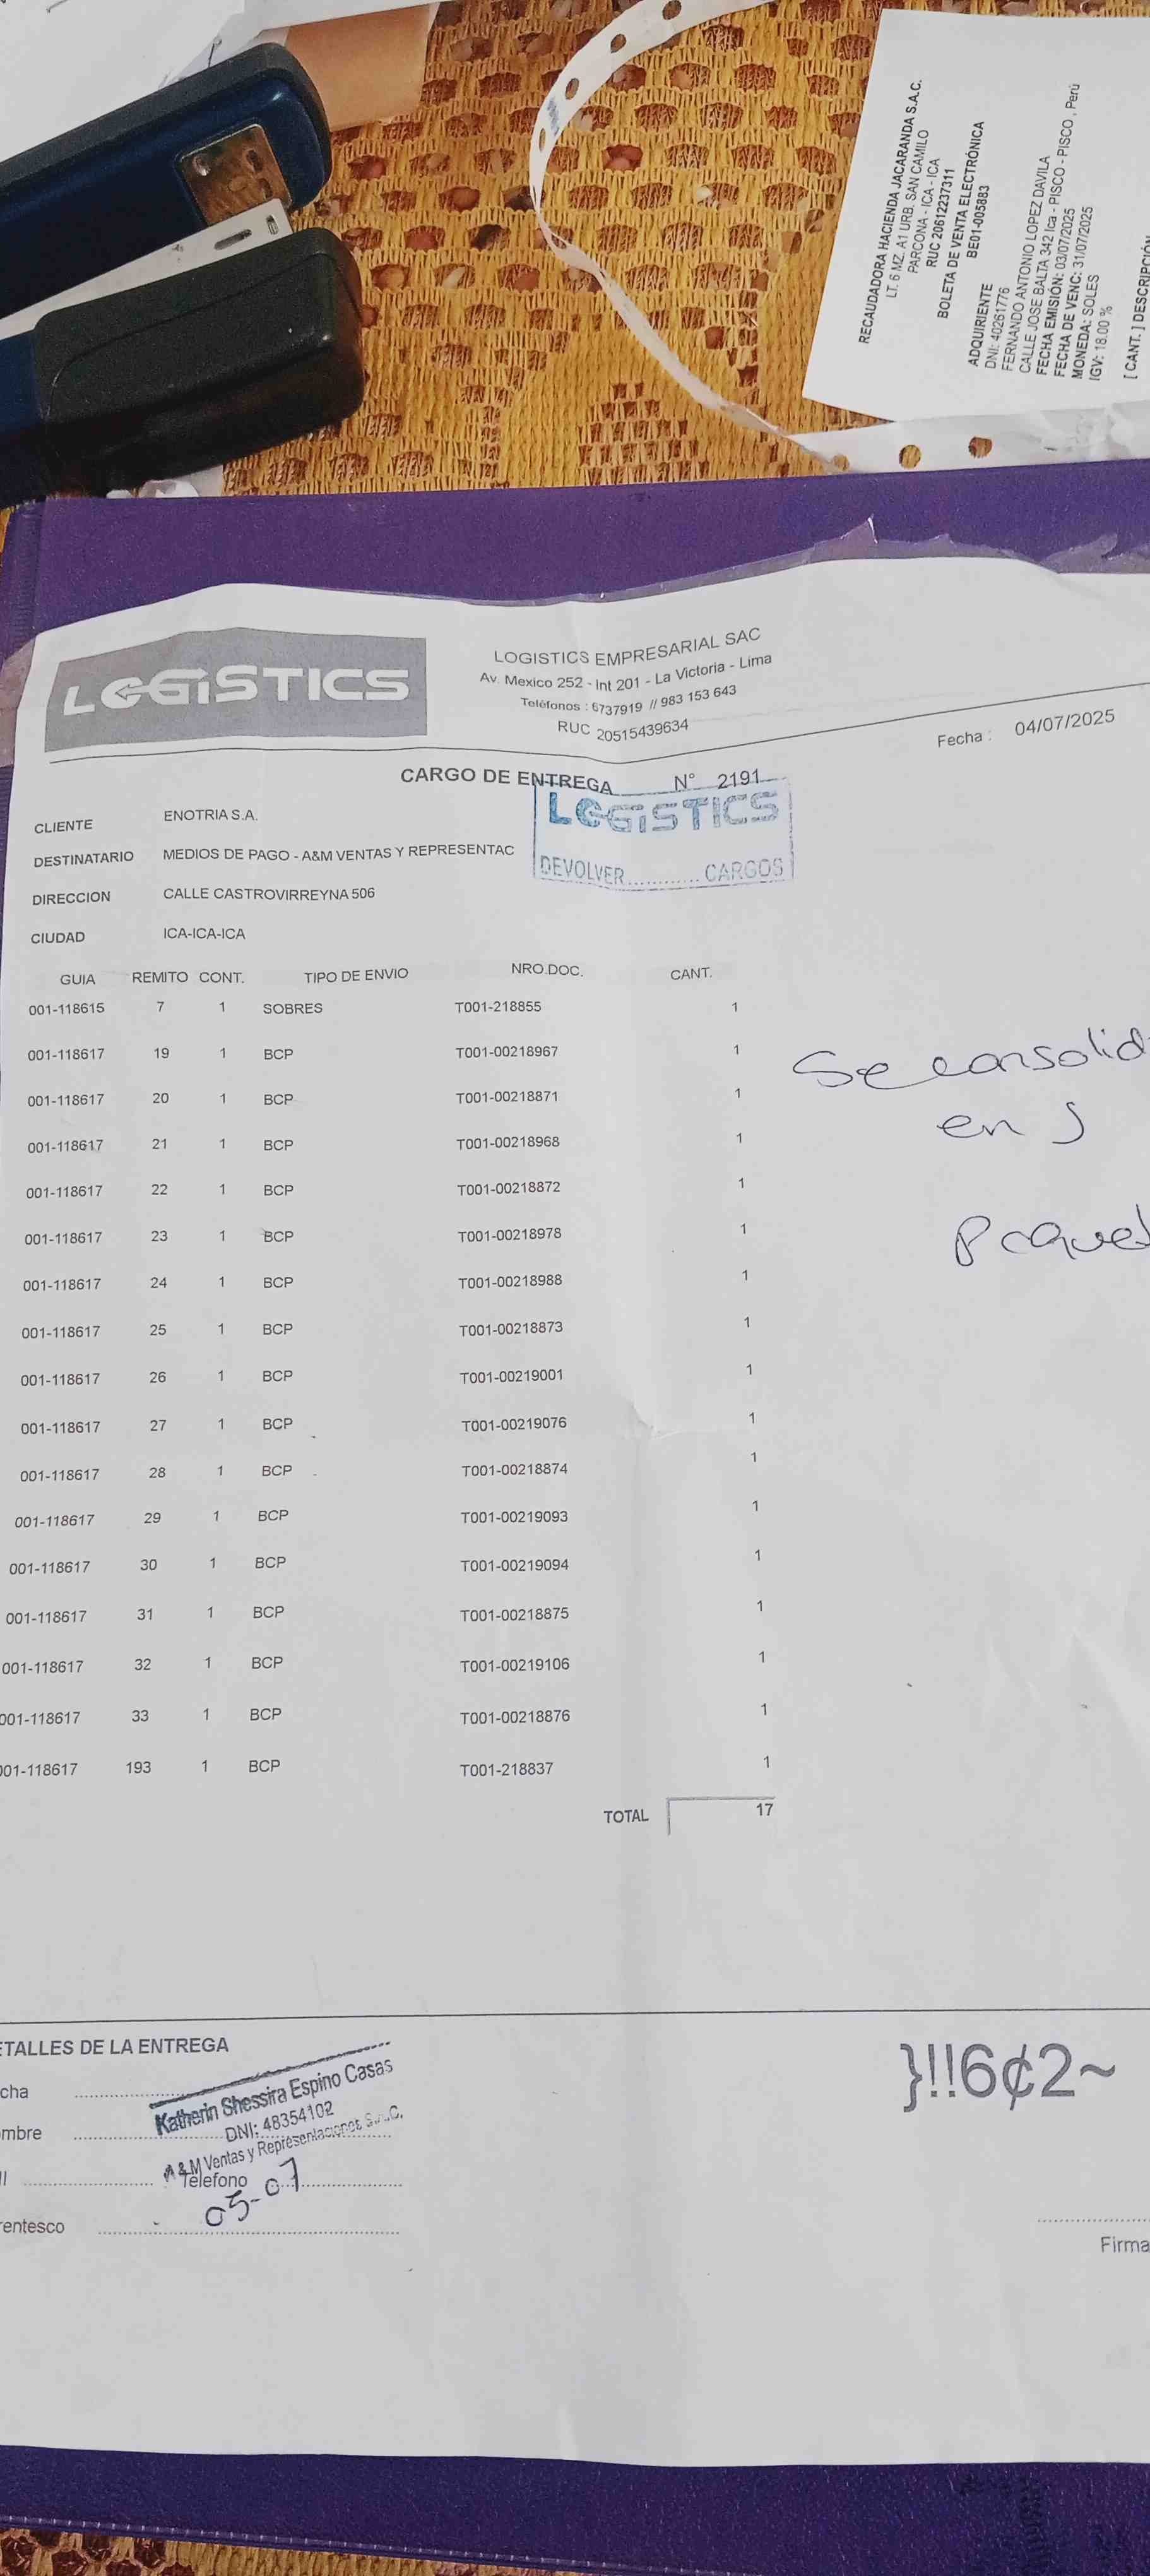 RECAUDADORA HACIENDA JACARANDA S.A.C.
LT. 6 MZ. A1 URB. SAN CAMILO
PARCONA - ICA - ICA
RUC 20612237311
BOLETA DE VENTA ELECTRÓNICA
BE01-005883
ADQUIRIENTE
DNI: 40261776
FERNANDO ANTONIO LOPEZ DAVILA
CALLE JOSE BALTA 342 Ica - PISCO - PISCO , Perú
FECHA EMISIÓN: 03/07/2025
FECHA DE VENC: 31/07/2025
MONEDA: SOLES
IGV: 18.00 %
[ CANT. ] DESCRIPCIÓN
LOGISTICS
LOGISTICS EMPRESARIAL SAC
Av. Mexico 252 - Int 201 - La Victoria - Lima
Teléfonos : 6737919 // 983 153 643
RUC 20515439634
Fecha : 04/07/2025
CARGO DE ENTREGA N° 2191
LOGISTICS
DEVOLVER........... CARGOS
CLIENTE ENOTRIA S.A.
DESTINATARIO MEDIOS DE PAGO - A&M VENTAS Y REPRESENTAC
DIRECCION CALLE CASTROVIRREYNA 506
CIUDAD ICA-ICA-ICA
GUIA REMITO CONT. TIPO DE ENVIO NRO.DOC. CANT.
001-118615 7 1 SOBRES T001-218855 1
001-118617 19 1 BCP T001-00218967 1
001-118617 20 1 BCP T001-00218871 1
001-118617 21 1 BCP T001-00218968 1
001-118617 22 1 BCP T001-00218872 1
001-118617 23 1 BCP T001-00218978 1
001-118617 24 1 BCP T001-00218988 1
001-118617 25 1 BCP T001-00218873 1
001-118617 26 1 BCP T001-00219001 1
001-118617 27 1 BCP T001-00219076 1
001-118617 28 1 BCP T001-00218874 1
001-118617 29 1 BCP T001-00219093 1
001-118617 30 1 BCP T001-00219094 1
001-118617 31 1 BCP T001-00218875 1
001-118617 32 1 BCP T001-00219106 1
001-118617 33 1 BCP T001-00218876 1
001-118617 193 1 BCP T001-218837 1
TOTAL 17
Se consolid
en
Paquet
ETALLES DE LA ENTREGA
cha
mbre
Katherin Shessira Espino Casas
DNI: 48354102
A & M Ventas y Representaciones S.A.C.
Telefono
05-07
rentesco
}!!6¢2~
Firma